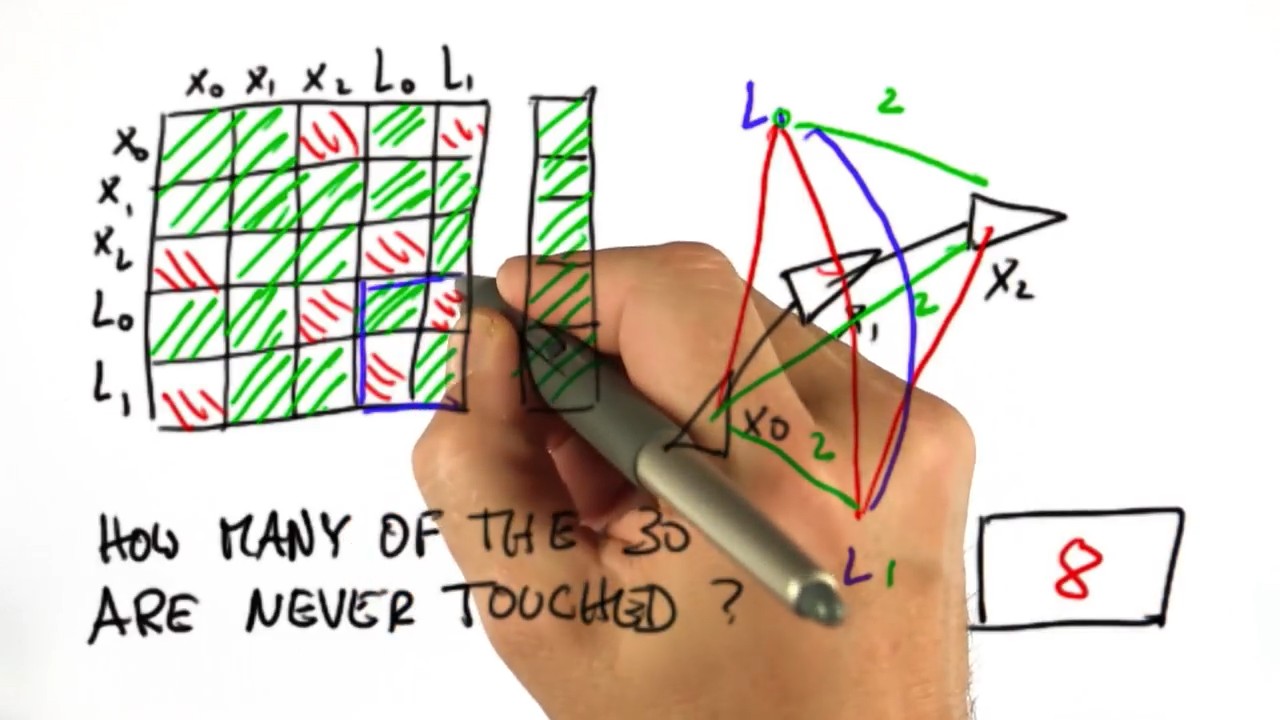 x₀ x₁ x₂ L₀ L₁
x₀
x₁
x₂
L₀
L₁
L₀ 2
x₂
2
x₀ 2
L₁
HOW MANY OF THE 30
ARE NEVER TOUCHED ?
8